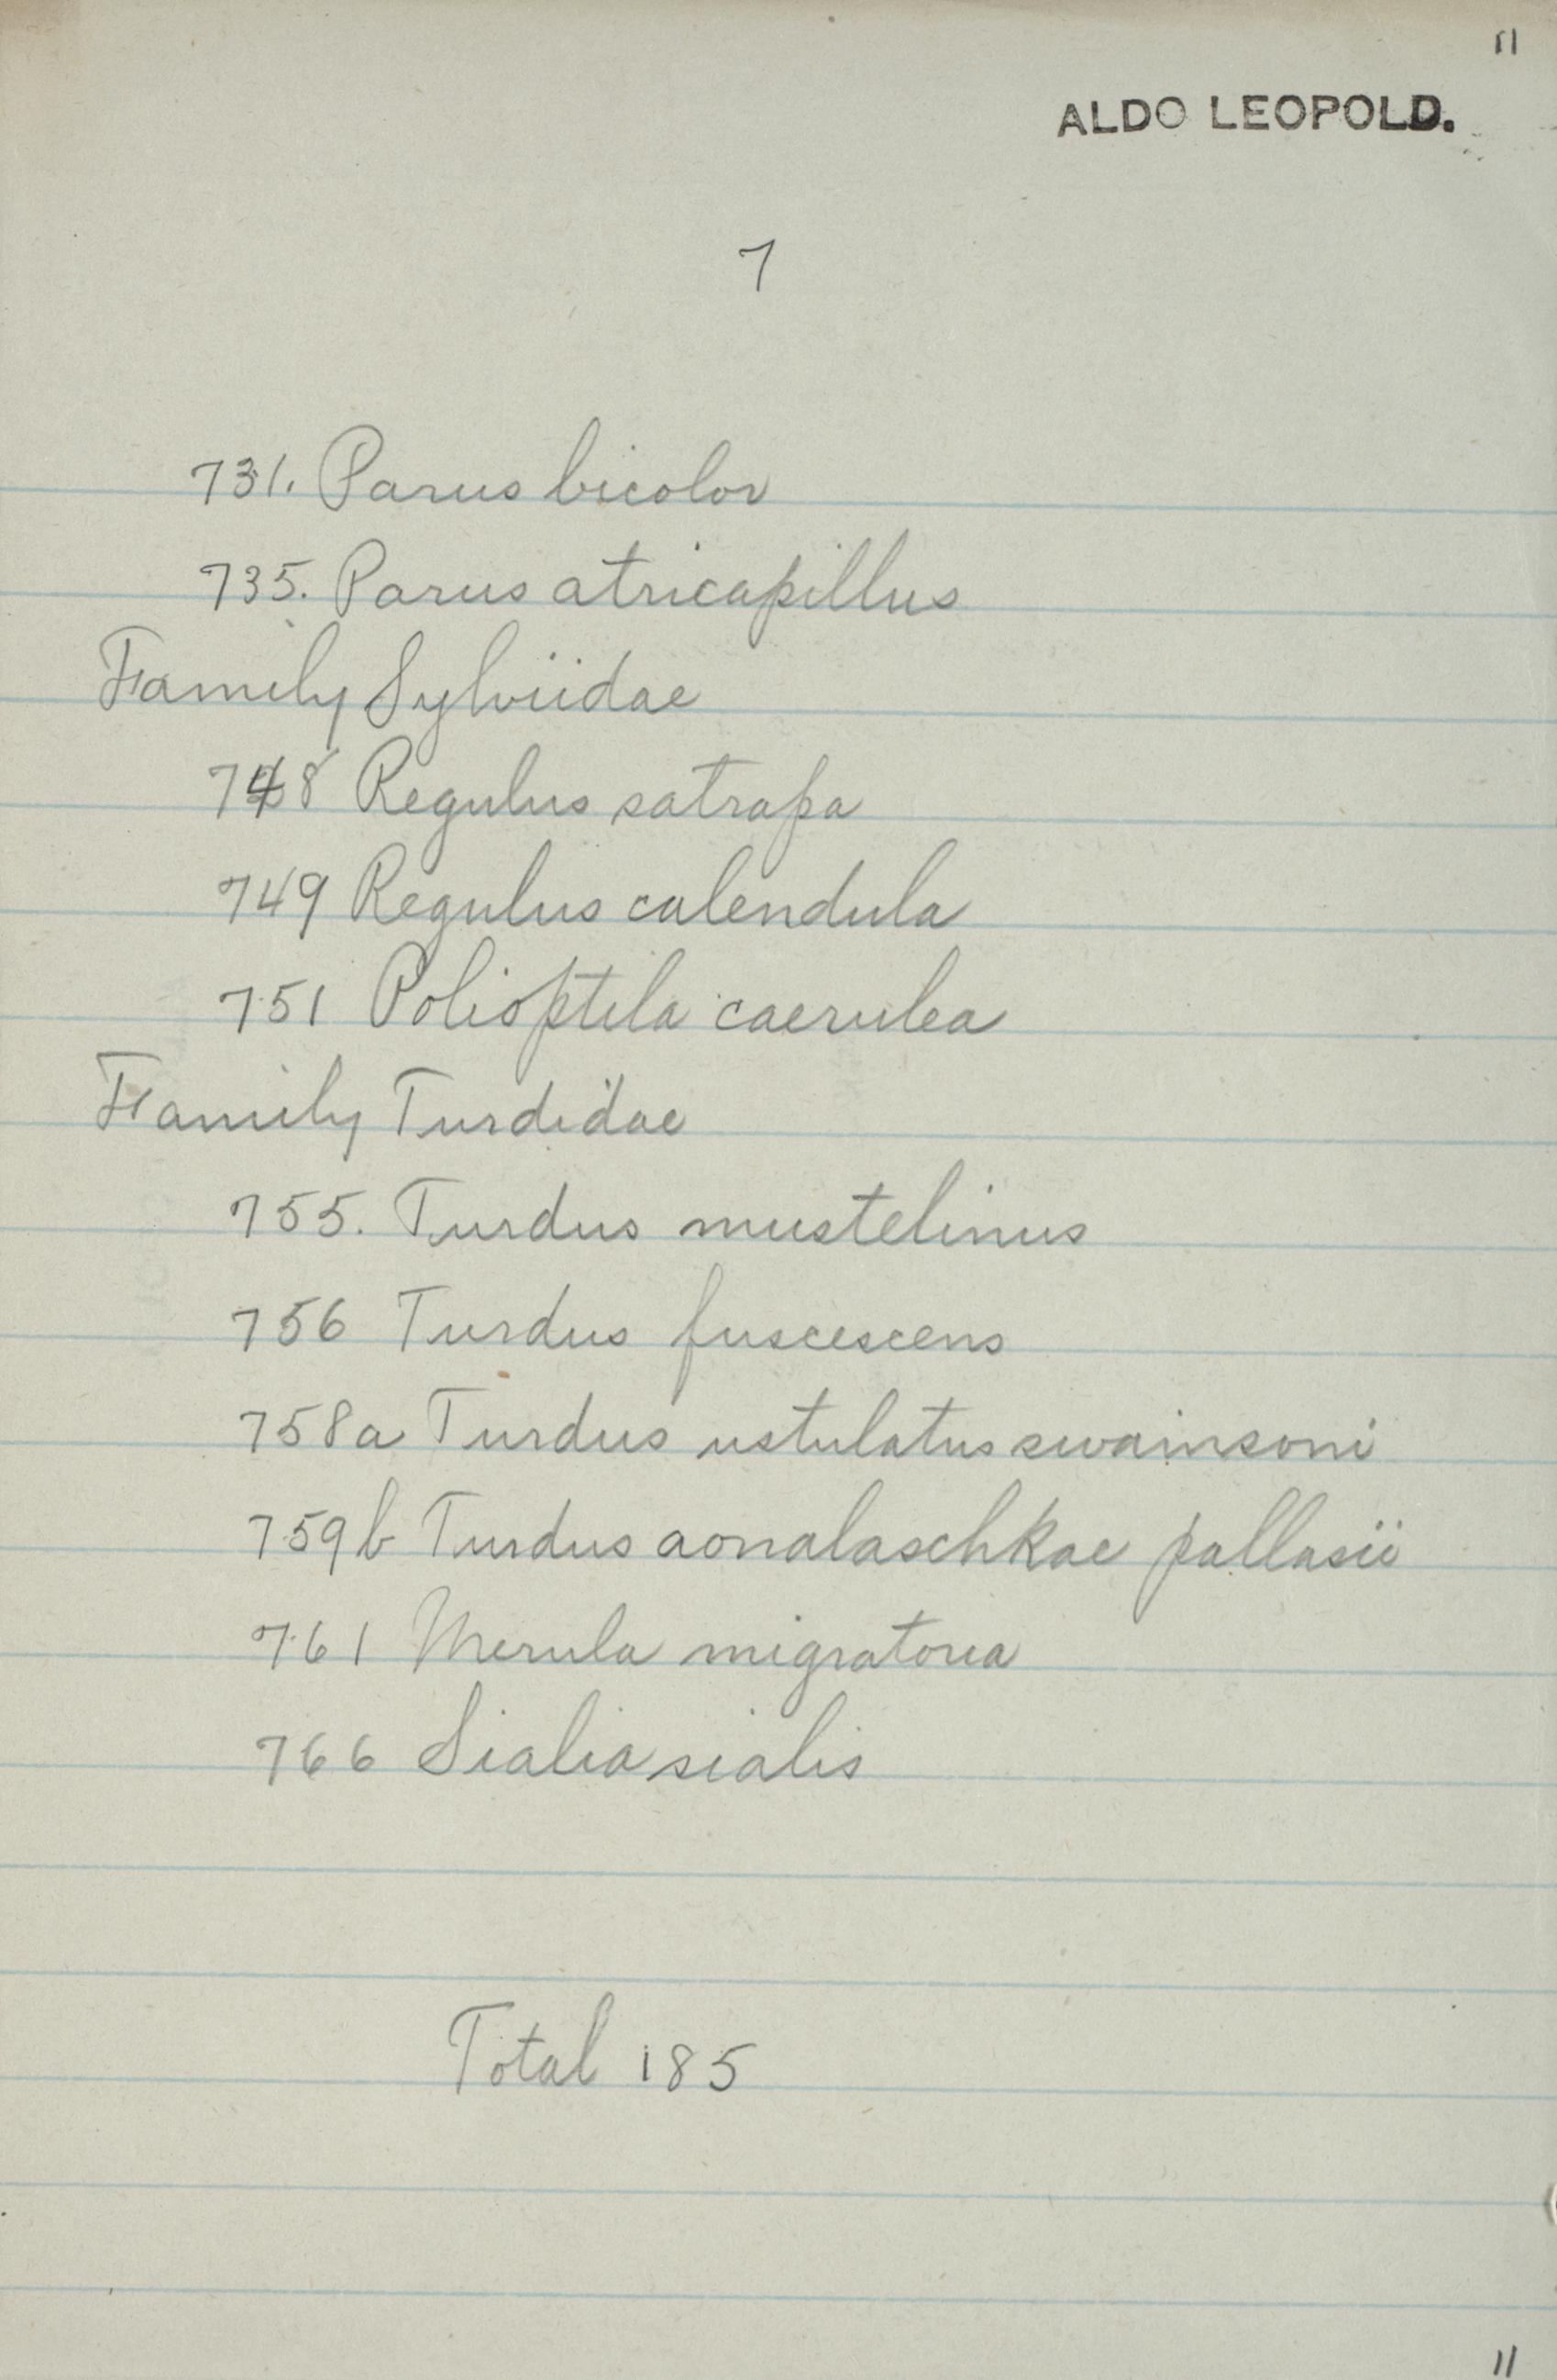 11
ALDO LEOPOLD.
7
731. Parus bicolor
735. Parus atricapillus
Family Sylviidae
748 Regulus satrapa
749 Regulus calendula
751 Polioptila caerulea
Family Turdidae
755. Turdus mustelinus
756 Turdus fuscescens
758a Turdus ustulatus swainsoni
759b Turdus aonalaschkae pallasii
761 Merula migratoria
766 Sialia sialis
Total 185
11